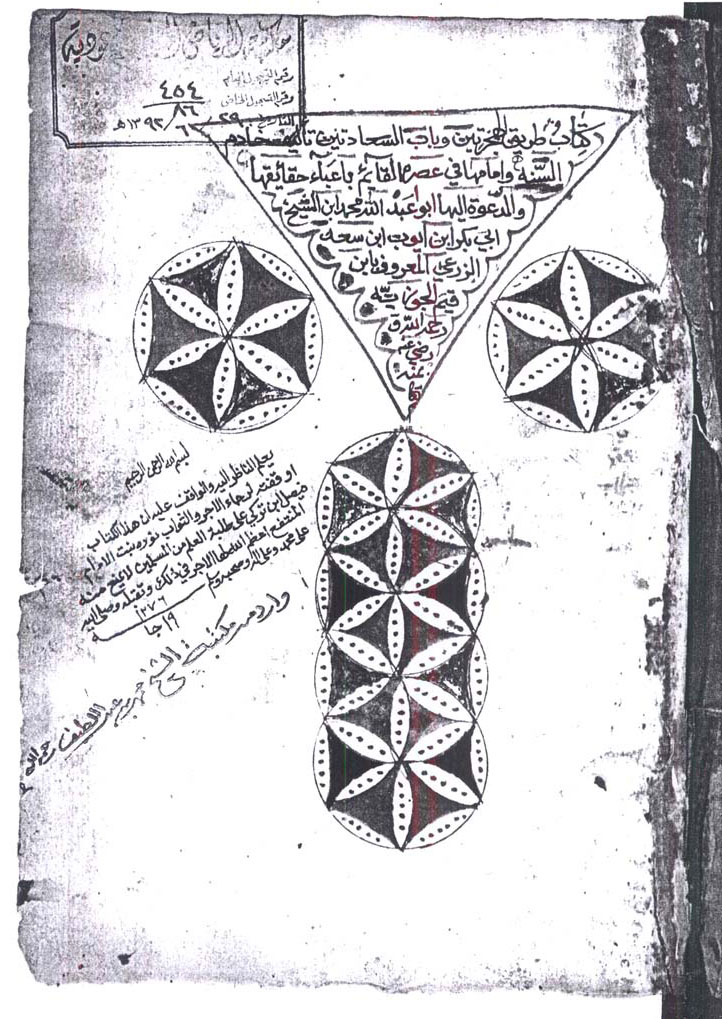 مكتبة الرياض السعودية
رقم التسجيل العام
٤٥٤
رقم التسجيل الخاص ٨٦
التاريخ ٢٩/٦/١٣٩٢هـ
كتاب طريق الهجرتين وباب السعادتين تأليف خادم
السنة وامامها في عصره القائم باعباء حقائقها
والدعوة اليها ابو عبد الله محمد ابن الشيخ
ابي بكر ابن ايوب ابن سعد
الزرعي المعروف بابن
قيم الجوزية
رحمه الله و
رضي
عنه
بسم الله الرحمن الرحيم
يعلم الناظر اليه والواقف عليه ان هذا الكتاب
اوقفته لرجاء الاجر والثواب نوره بنت الامام
فيصل ابن تركي على طلبة العلم من المسلمين لا يمنع منه
المنتفع اعظم الله لها الاجر في ذلك وتقبله وصلى الله
على محمد وعلى اله وصحبه وسلم
١٩ جا ١٢٧٦
وارد من مكتبة الشيخ محمد بن عبد اللطيف رحمه الله